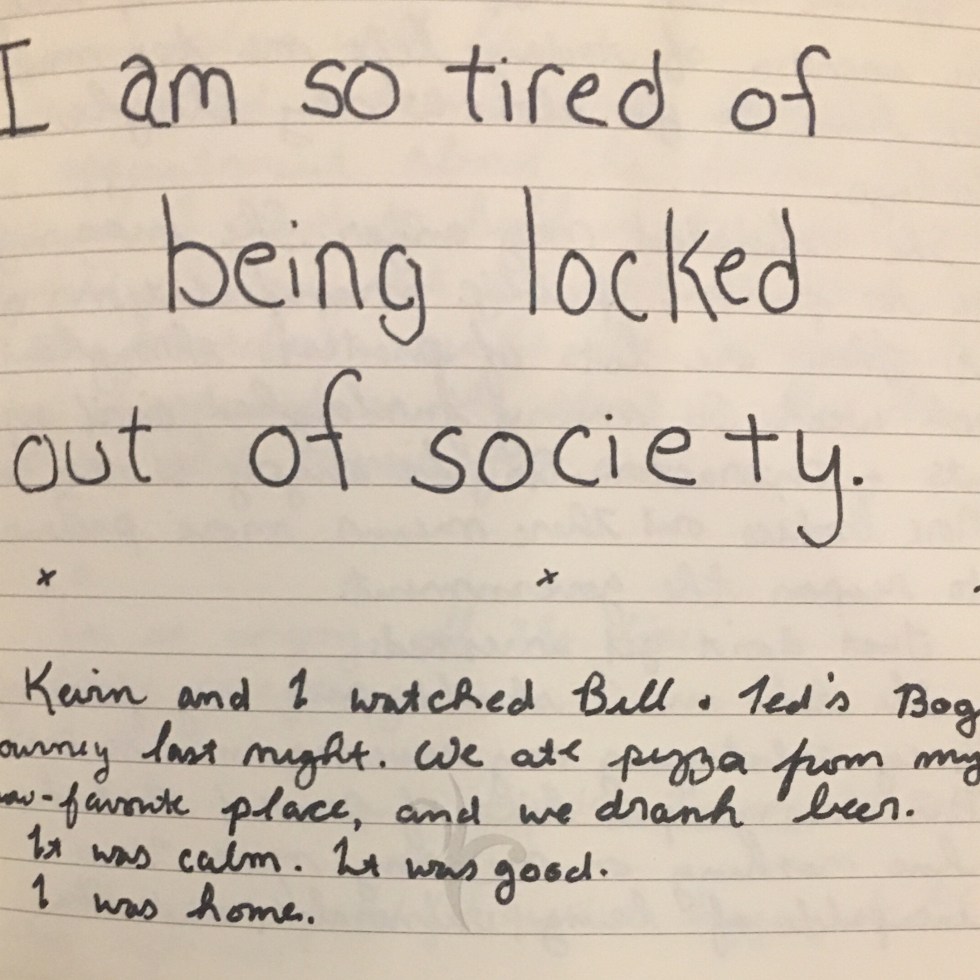 I am so tired of
being locked
out of society.
x x
Kevin and I watched Bill + Ted's Bog
ourney last night. We ate pizza from my
-favorite place, and we drank beer.
It was calm. It was good.
I was home.